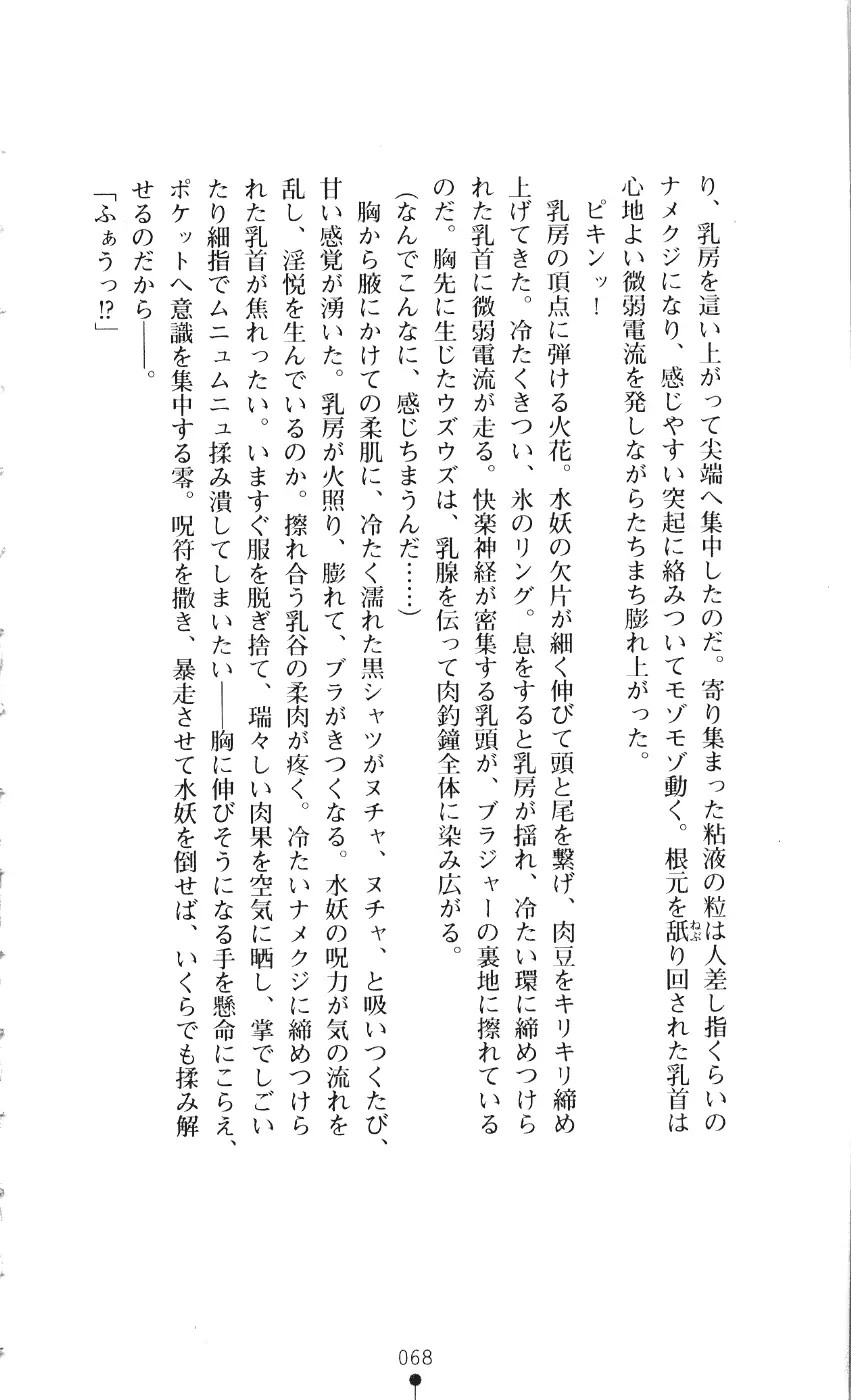 り、乳房を這い上がって尖端へ集中したのだ。寄り集まった粘液の粒は人差し指くらいの
ナメクジになり、感じやすい突起に絡みついてモゾモゾ動く。根元を舐り回された乳首は
ねぶ
心地よい微弱電流を発しながらたちまち膨れ上がった。
ピキンッ！
乳房の頂点に弾ける火花。水妖の欠片が細く伸びて頭と尾を繋げ、肉豆をキリキリ締め
上げてきた。冷たくきつい、氷のリング。息をすると乳房が揺れ、冷たい環に締めつけら
れた乳首に微弱電流が走る。快楽神経が密集する乳頭が、ブラジャーの裏地に擦れている
のだ。胸先に生じたウズウズは、乳腺を伝って肉釣鐘全体に染み広がる。
（なんでこんなに、感じちまうんだ……）
胸から腋にかけての柔肌に、冷たく濡れた黒シャツがヌチャ、ヌチャ、と吸いつくたび、
甘い感覚が湧いた。乳房が火照り、膨れて、ブラがきつくなる。水妖の呪力が気の流れを
乱し、淫悦を生んでいるのか。擦れ合う乳谷の柔肉が疼く。冷たいナメクジに締めつけら
れた乳首が焦れったい。いますぐ服を脱ぎ捨て、瑞々しい肉果を空気に晒し、掌でしごい
たり細指でムニュムニュ揉み潰してしまいたい――胸に伸びそうになる手を懸命にこらえ、
ポケットへ意識を集中する零。呪符を撒き、暴走させて水妖を倒せば、いくらでも揉み解
せるのだから――。
「ふぁうっ!?」
068